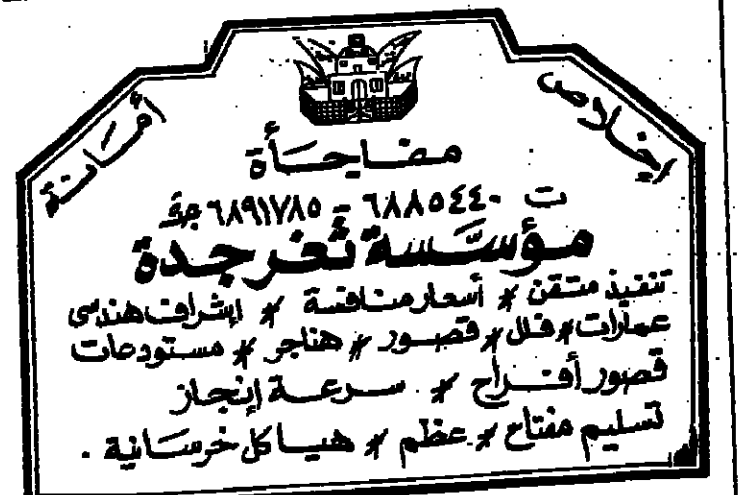 إخلاص
أمانة
مفاجأة
ت ٦٨٨٥٤٤٠ - ٦٨٩١٧٨٥ جدة
مؤسَّسة ثغر جدة
تنفيذ متقن * أسعار منافسة * إشراف هندسى
عمارات * فلل * قصور * هناجر * مستودعات
قصور أفراح * سرعة إنجاز
تسليم مفتاح * عظم * هياكل خرسانية .